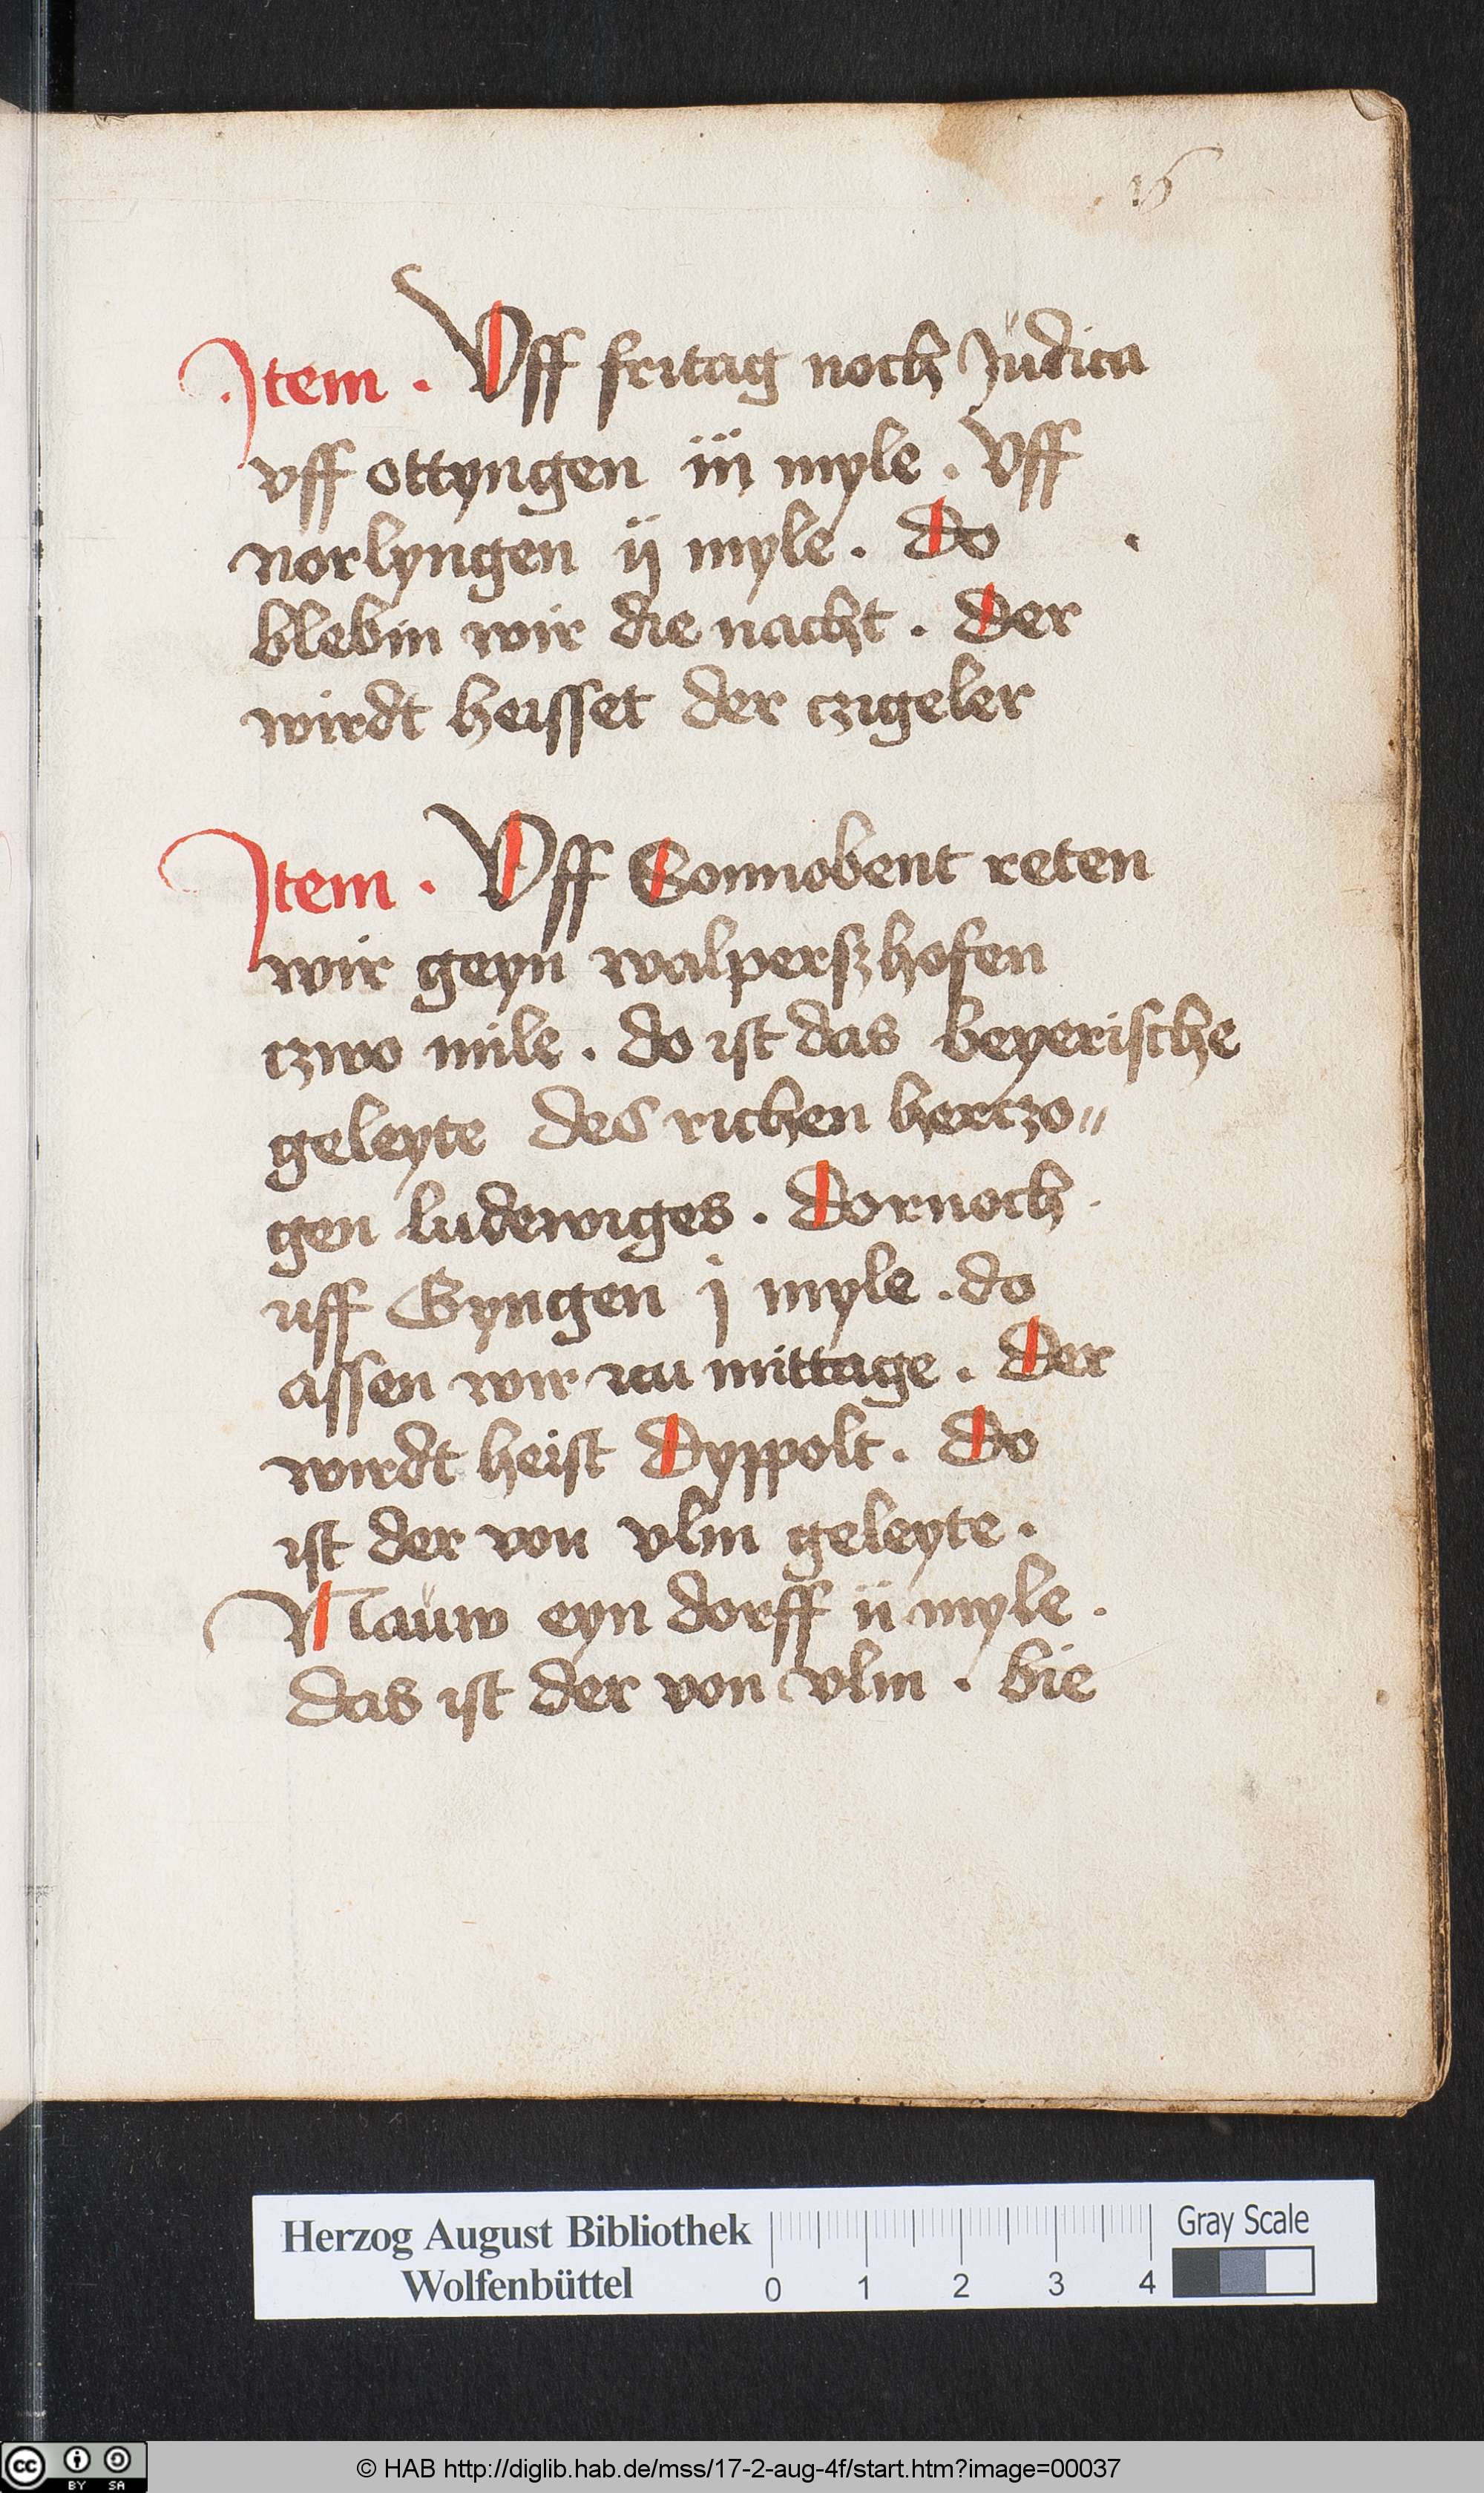 16
Item . Vff fritag noch Judica
vff ottyngen iij myle . Vff
norlyngen ij myle . do
blebin wir die nacht . Der
wirdt heisset der czigeler
Item . Vff Sonnobent reten
wir geyn walperszhofen
czwo mile . do ist das beyerische
geleyte des richen herczo〃
gen ludewiges . Dornoch
uff Gyngen j myle . do
assen wir zu mittage . Der
wirdt heist Dyppolt . Do
ist der von vlm geleyte .
Nauw eyn dorff ii myle .
das ist der von vlm . bie
Herzog August Bibliothek
Wolfenbüttel
0 1 2 3 4
Gray Scale
cc BY SA
© HAB http://diglib.hab.de/mss/17-2-aug-4f/start.htm?image=00037